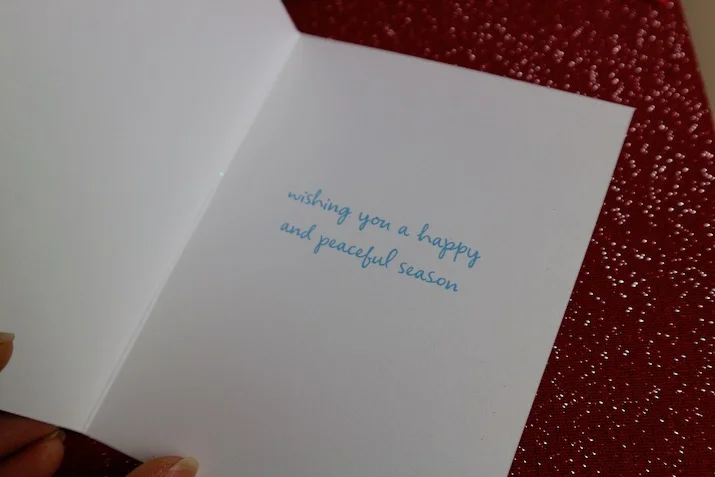 wishing you a happy
and peaceful season